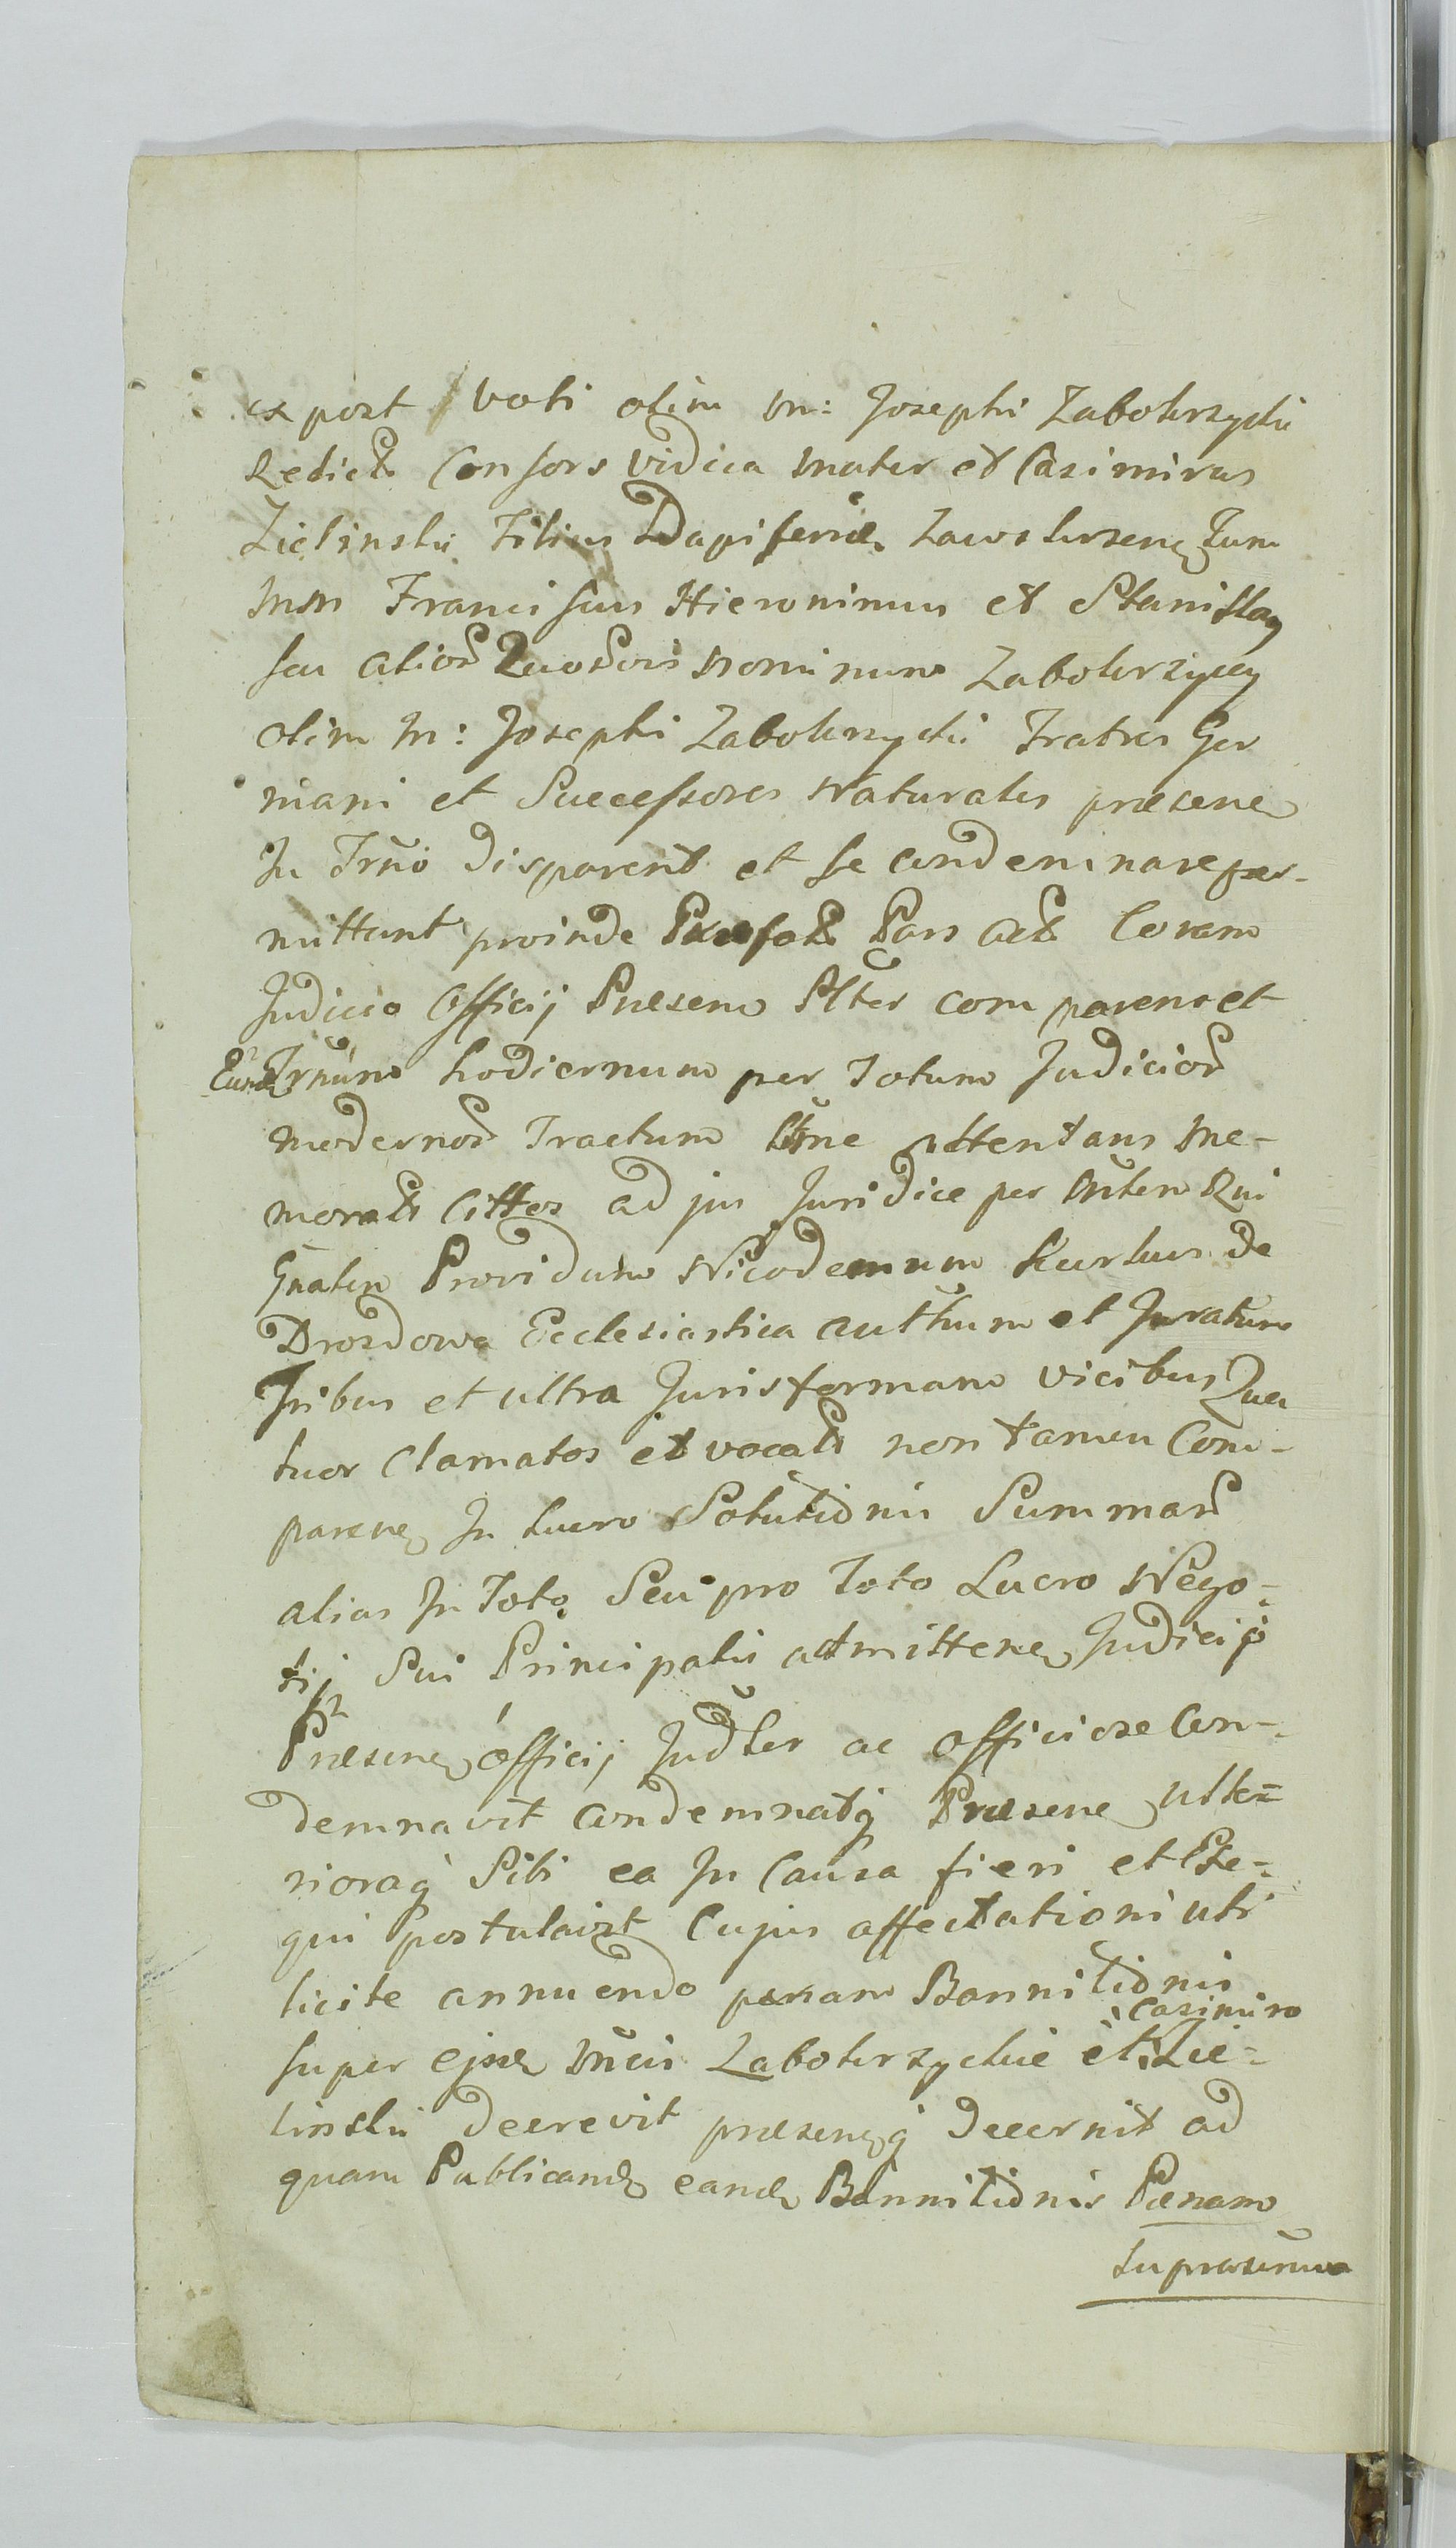 ex post vati olim M: Josephi Zabokrzycki
Relicta Consors vidua mater et Casimirus
Zielinski Filius Dapiferidæ Zawskrzenę Tum
MM Franciscus Hieronimus et Stanislaɔ
seu aliorū Quorūvis nominum Zabokrzyccy
olim M: Josephi Zabokrzycki Fratres Ger
mani et Successores Naturales præsenę
In Trno disparent et se condemnare per-
mittunt proinde Pars Act Coram
Judicio Officij Præsenę Pltter comparens et
Eund Trnūm hodiernum per Totum Judiciorū
modernorū Tractum attentans me-
morat Cittos ad jus Juridice per Mnlem Rui
Gnalem Providum Nicodemum Kurkus de
Drozdowa Ecclesiastica authum et Juratum
Tribus et ultra Juris formam vicibus Qua
tuor Clamatos et vocat non tamen Com-
parenę In lucro Solutionis Summarū
alias In Toto Seu pro Toto Lucro Nego-
tij Sui Principalis admittenę Judicij
Præsenę officij Judler ac Officiose Con-
demnavit Condemnatq Præsenę ulte=
rioraq Sibi ea In Causa fieri et Exe-
qui postulavit Cujus affectationi uti
licite annuendo pænam Bannitionis
super ejsdę Mcis Zabokrzyckie et Casimiro Zie-
linski decrevit præsenęq decernit ad
quam Publicandę eandę Bannitionis Pænam